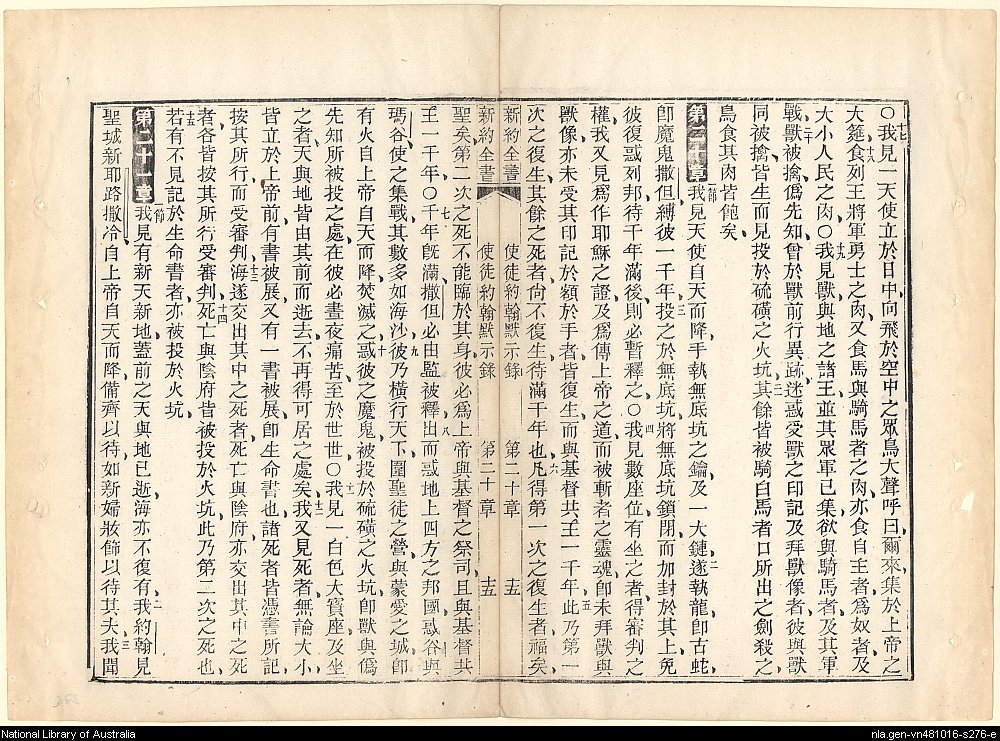 ○我見一天使立於日中向飛於空中之眾鳥大聲呼曰爾來集於上帝之
大筵食列王將軍勇士之肉又食馬與騎馬者之肉亦食自主者爲奴者及
大小人民之肉○我見獸與地之諸王並其眾軍已集欲與騎馬者及其軍
戰獸被擒僞先知曾於獸前行異跡迷惑受獸之印記及拜獸像者彼與獸
同被擒皆生而見投於硫磺之火坑其餘皆被騎白馬者口所出之劍殺之
鳥食其肉皆飽矣
第二十章一節我見天使自天而降手執無底坑之鑰及一大鏈遂執龍卽古蛇
卽魔鬼撒但縛彼一千年投之於無底坑將無底坑鎖閉而加封於其上免
彼復惑列邦待千年滿後則必暫釋之○我見數座位有坐之者得審判之
權我又見爲作耶穌之證及爲傳上帝之道而被斬者之靈魂卽未拜獸與
獸像亦未受其印記於額於手者皆復生而與基督共王一千年此乃第一
次之復生其餘之死者尚不復生待滿千年也凡得第一次之復生者福矣
新約全書 使徒約翰默示錄 第二十章 十五
新約全書 使徒約翰默示錄 第二十章 十五
聖矣第二次之死不能臨於其身彼必爲上帝與基督之祭司且與基督共
王一千年○千年旣滿撒但必由監被釋出而惑地上四方之邦國惑谷與
瑪谷使之集戰其數多如海沙彼乃橫行天下圍聖徒之營與蒙愛之城卽
有火自上帝自天而降焚滅之惑彼之魔鬼被投於硫磺之火坑卽獸與僞
先知所被投之處在彼必晝夜痛苦至於世世○我見一白色大寶座及坐
之者天與地皆由其前而逝去不再得可居之處矣我又見死者無論大小
皆立於上帝前有書被展又有一書被展卽生命書也諸死者皆憑書所記
按其所行而受審判海遂交出其中之死者死亡與陰府亦交出其中之死
者各皆按其所行受審判死亡與陰府皆被投於火坑此乃第二次之死也
若有不見記於生命書者亦被投於火坑
第二十一章一節我見有新天新地蓋前之天與地已逝海亦不復有我約翰見
聖城新耶路撒冷自上帝自天而降備齊以待如新婦妝飾以待其夫我聞
National Library of Australia
nla.gen-vn481016-s276-e